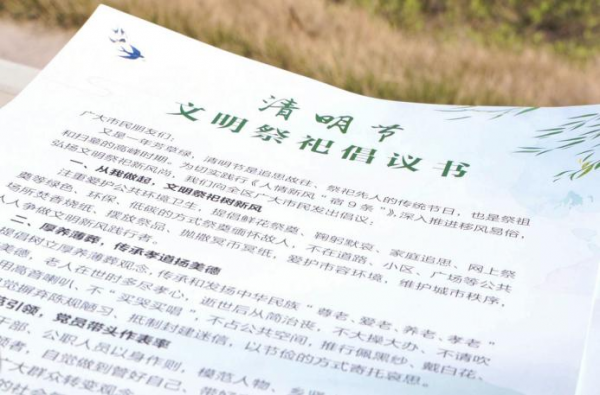 清明节
文明祭祀倡议书
广大市民朋友们：
又是一年芳草绿，清明节是追思故往、祭祀先人的传统节日，也是祭祖
和扫墓的高峰时期。为切实践行《人情新风“宿9条”》，深入推进移风易俗，
弘扬文明祭祀新风尚，我们向全区广大市民发出倡议：
一、从我做起，文明祭祀树新风
注重爱护公共环境卫生，提倡鲜花祭奠、鞠躬默哀、家庭追思、网上祭
奠等绿色、环保、低碳的方式祭奠缅怀故人，不在道路、小区、广场等公共
场所焚香烧纸、摆放祭品、抛撒冥币冥纸，爱护市容环境，维护城市秩序，
人人争做文明新风践行者。
二、厚养薄葬，传承孝道扬美德
提倡树立厚养薄葬观念，传承和发扬中华民族“尊老、爱老、养老、孝老”
美德，老人在世时多尽孝心，逝世后从简治丧，不大操大办、不请吹
用高音喇叭、不“买哭买唱”，不占公共空间，推行佩黑纱、戴白花、
觉摒弃陈规陋习，抵制封建迷信，以节俭的方式寄托哀思。
范引领，党员带头作表率
干部、公职人员以身作则，模范人物、乡
领者，自觉做到管好自己、带
大群众转变观念
的社会